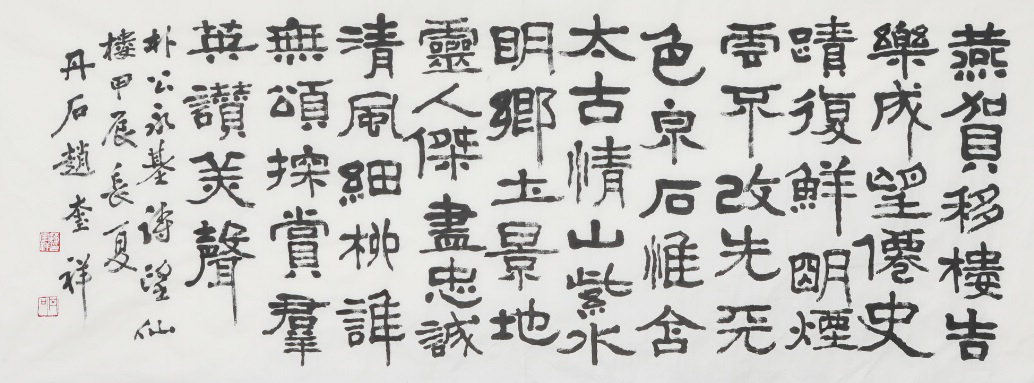 燕賀移樓告
樂成望僊史
蹟復鮮明煙
雲不改先天
色泉石惟含
太古情山紫水
明鄉土景地
靈人傑盡忠誠
清風細柳誰
無頌探賞羣
英讚美聲
朴公永基詩望仙
樓甲辰長夏
丹石趙奎祥